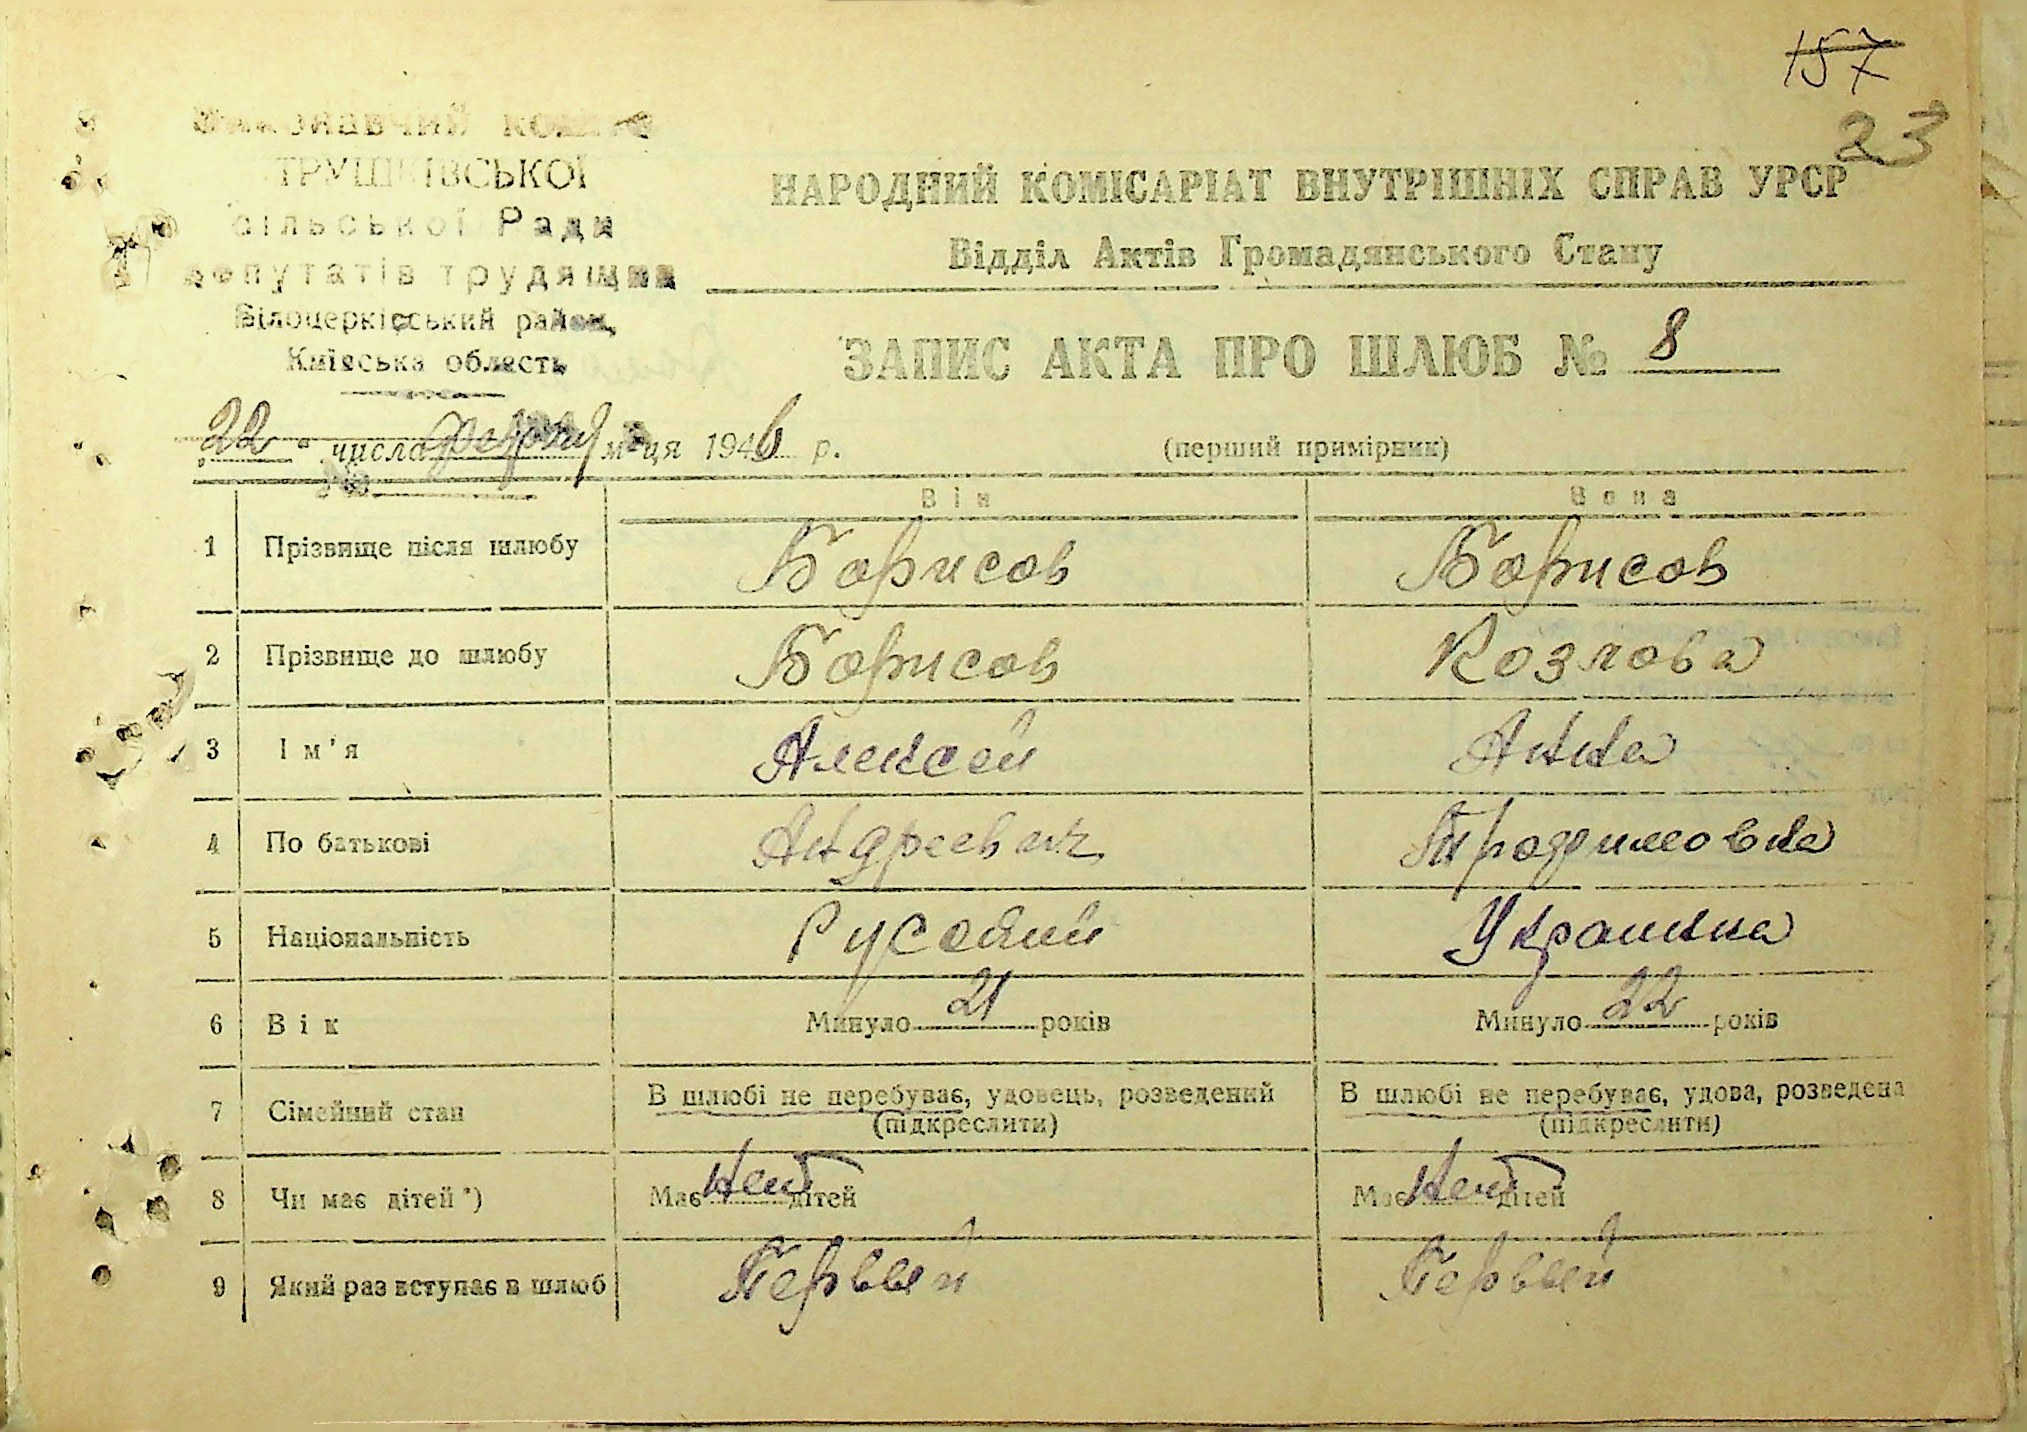 157
23
ТРУШКІВСЬКОЇ
сільської Ради
депутатів трудящих
Білоцерківський район,
Київська область
НАРОДНИЙ КОМІСАРІАТ ВНУТРІШНІХ СПРАВ УРСР
Відділ Актів Громадянського Стану
ЗАПИС АКТА ПРО ШЛЮБ № 8
"22" числа м-ця 1946 р.
(перший примірник)
№
Він Вона
1 Прізвище після шлюбу Борисов Борисов
2 Прізвище до шлюбу Борисов Козлова
3 Ім'я Алексей Анна
4 По батькові Андреевич Трофимовна
5 Національність Руский Украинка
6 Вік Минуло 21 років Минуло 22 років
7 Сімейний стан В шлюбі не перебуває, удовець, розведений В шлюбі не перебуває, удова, розведена
(підкреслити) (підкреслити)
8 Чи має дітей *) Має Нет дітей Має Нет дітей
9 Який раз вступає в шлюб Первый Первый